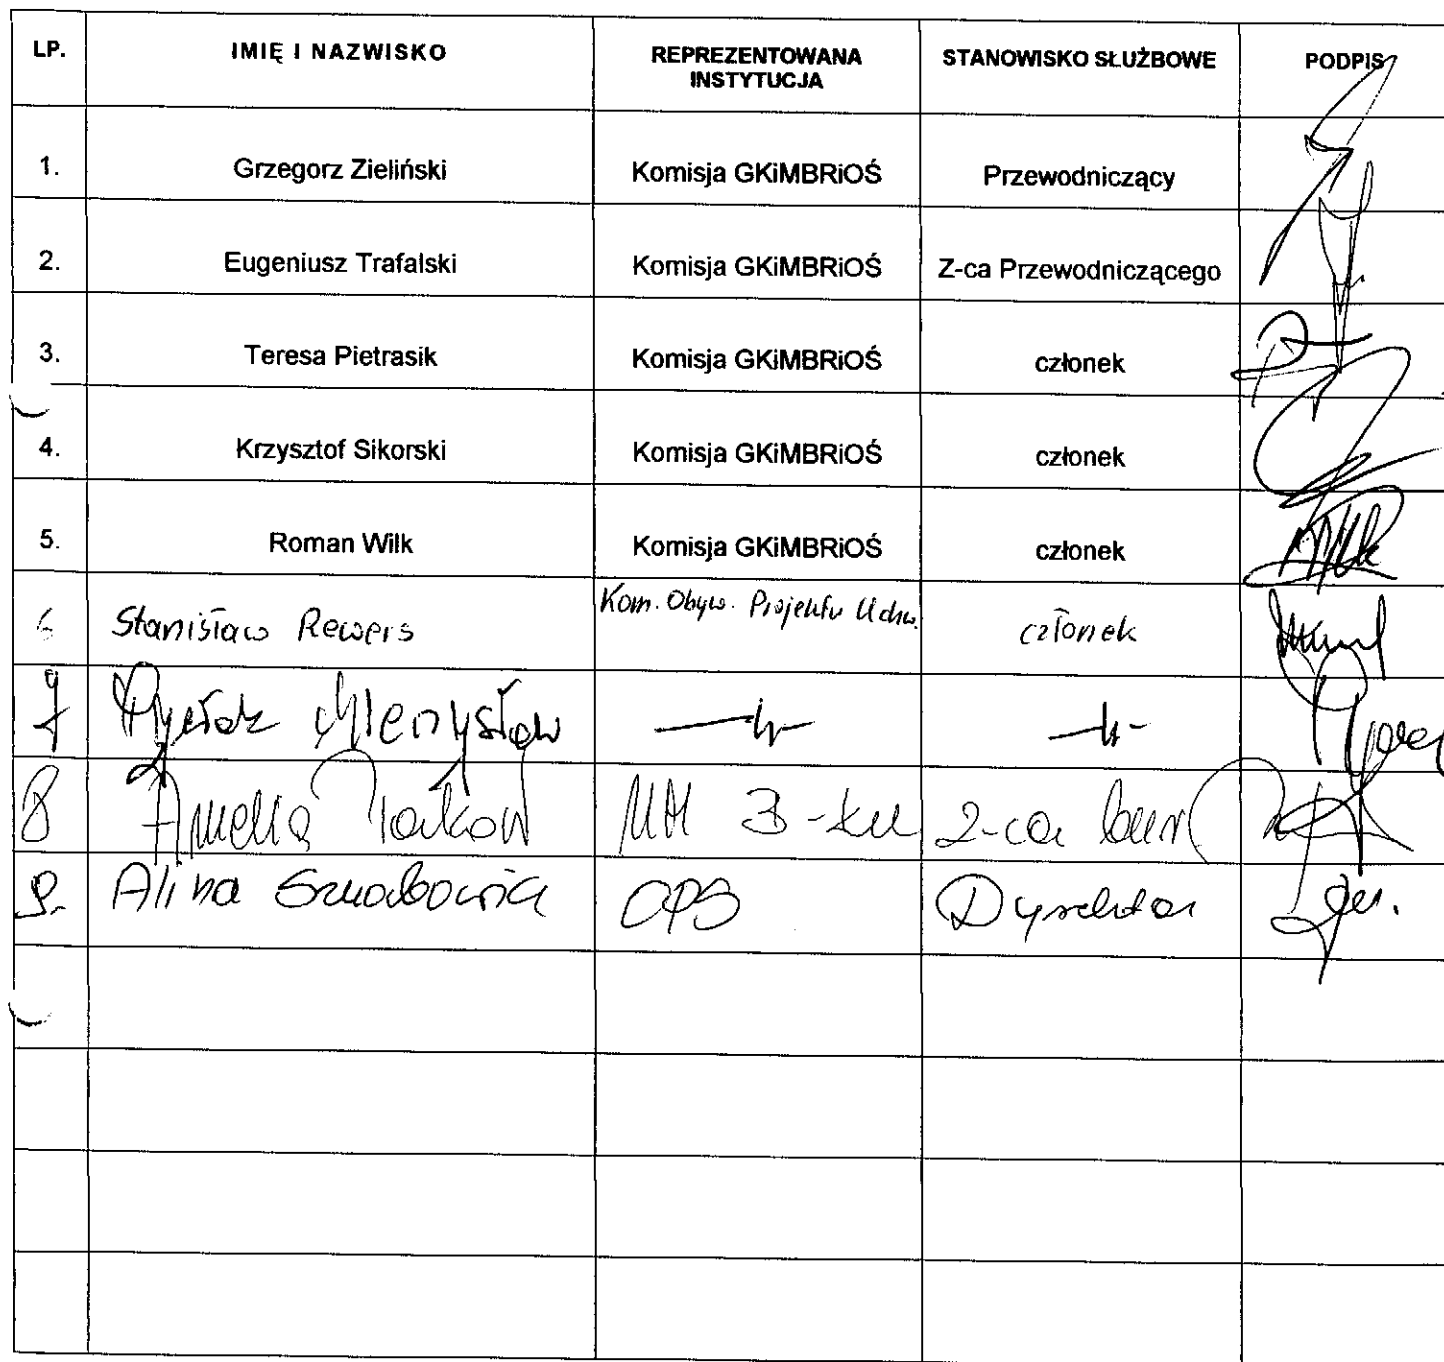 LP. IMIĘ I NAZWISKO REPREZENTOWANA INSTYTUCJA STANOWISKO SŁUŻBOWE PODPIS
1. Grzegorz Zieliński Komisja GKiMBRiOŚ Przewodniczący
2. Eugeniusz Trafalski Komisja GKiMBRiOŚ Z-ca Przewodniczącego
3. Teresa Pietrasik Komisja GKiMBRiOŚ członek
4. Krzysztof Sikorski Komisja GKiMBRiOŚ członek
5. Roman Wilk Komisja GKiMBRiOŚ członek
6 Stanisław Rewers Kom. Obyw. Projektu Uchw. członek
7 -||- -||-
8 Amelia UM Z-ca
9. Alina OPS Dyrektor